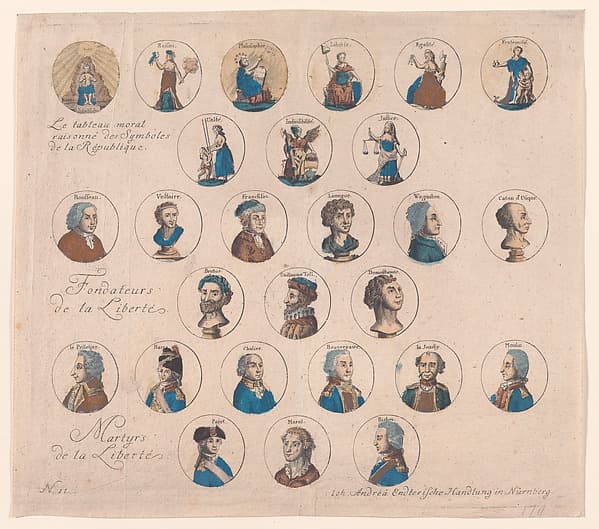 Raison.
Philosophie.
Liberté.
Egalité.
Fraternité.
Le tableau moral
raisonné des Symboles
de la République.
Unité.
Indivisibilité.
Justice.
Rousseau.
Voltaire.
Francklin.
Waginston.
Caton d'Utique.
Fondateurs
de la Liberté.
Brutus.
Guillaume Tell.
Martyrs
de la Liberté.
le Pelletier.
Bara.
Chalier.
Beaurepaire.
Moulin.
Marat.
N. 11.
Joh. Andreä Endterische Handlung in Nürnberg